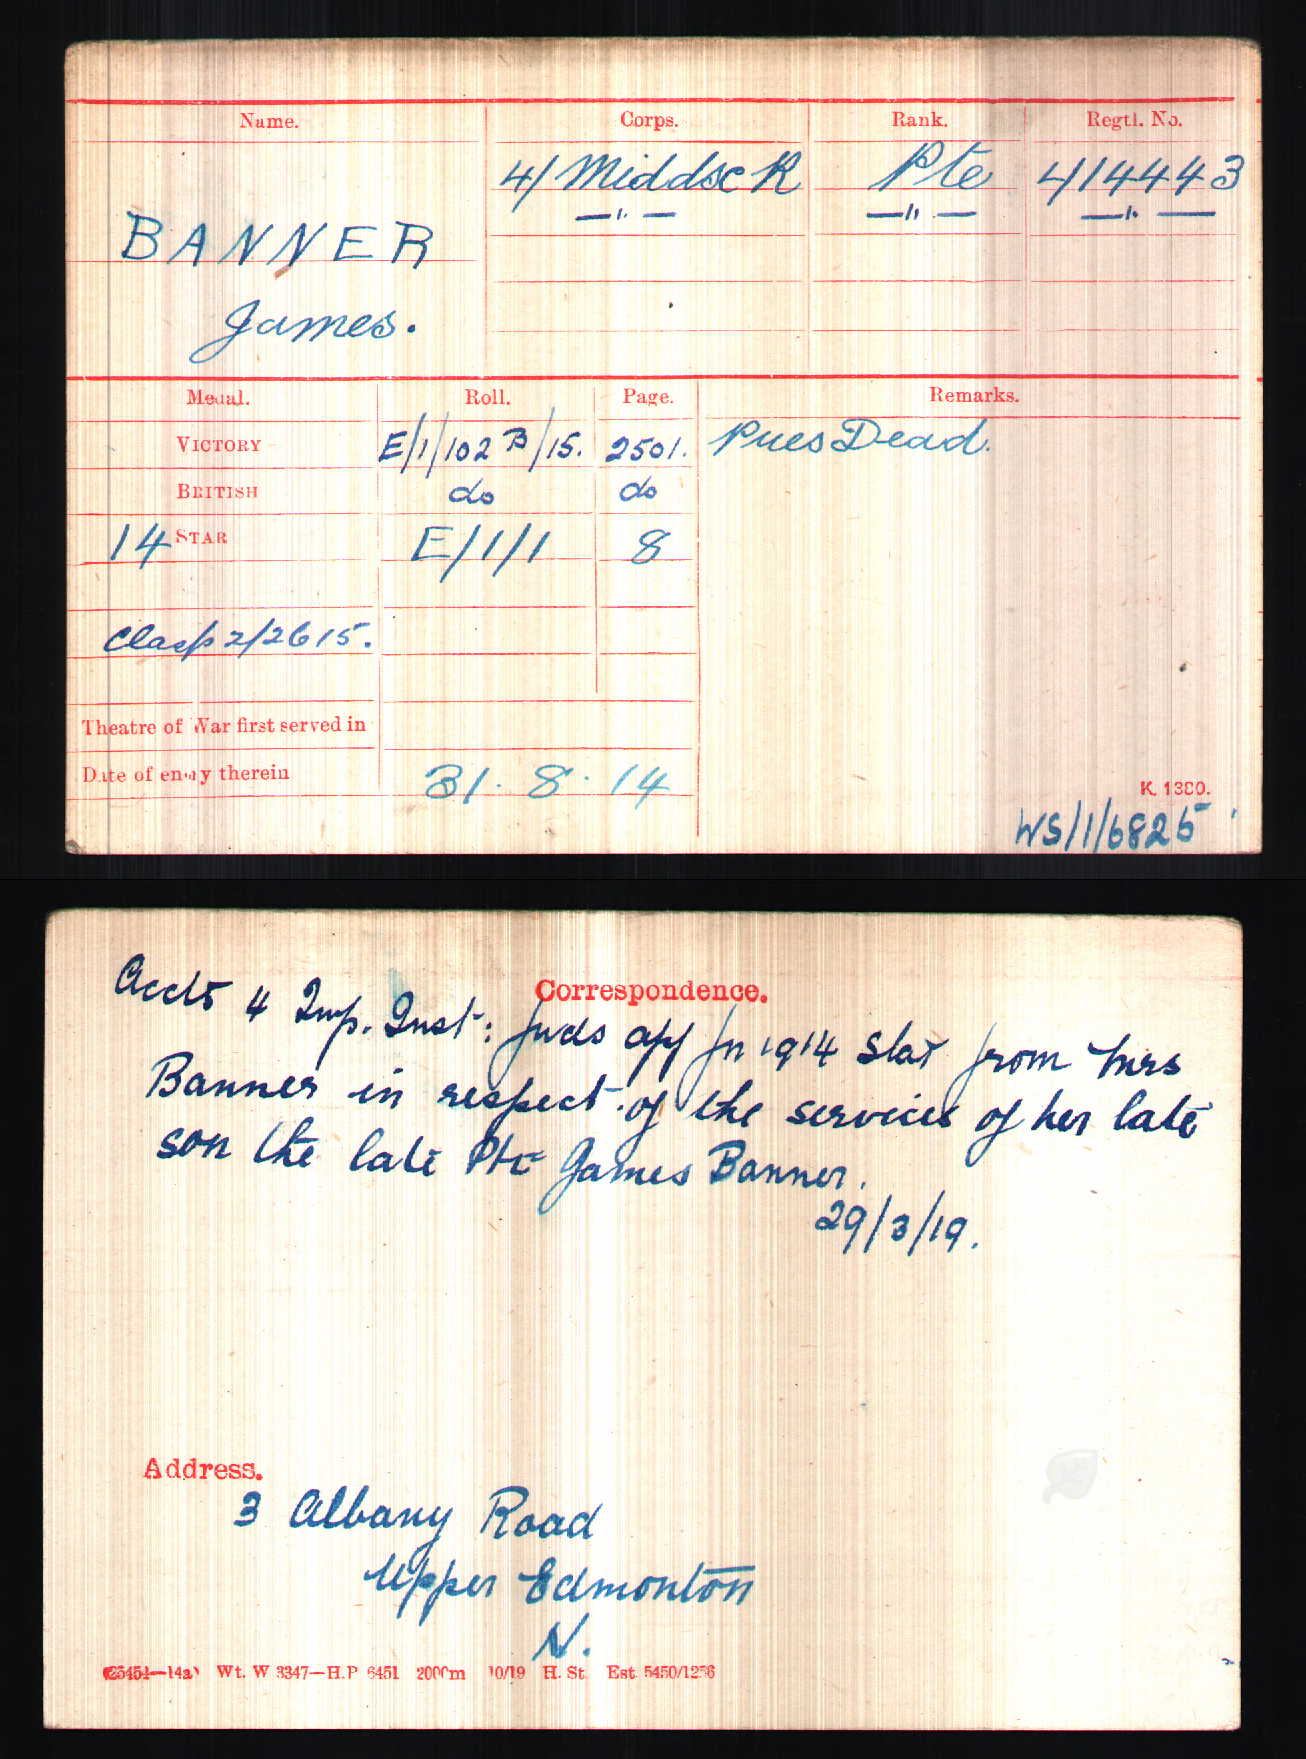 Name. Corps. Rank. Regtl. No.
4/Middsc R Pte 4/14443
—"— —"— —"—
BANNER
James.
Medal. Roll. Page. Remarks.
VICTORY E/1/102 B/15. 2501. Pres Dead.
BRITISH do do
14 STAR E/1/1 8
Clasp 2/2615.
Theatre of War first served in
Date of entry therein 31. 8. 14
K. 1380.
WS/1/6825
Correspondence.
Accts 4 Imp. Inst: fwds app fr 1914 Star from Mrs
Banner in respect of the services of her late
son the late Pte James Banner.
29/3/19.
Address.
3 Albany Road
Upper Edmonton
N.
Wt. W 3347—H.P 6451 2000m 10/19 H. St. Est. 5450/1256